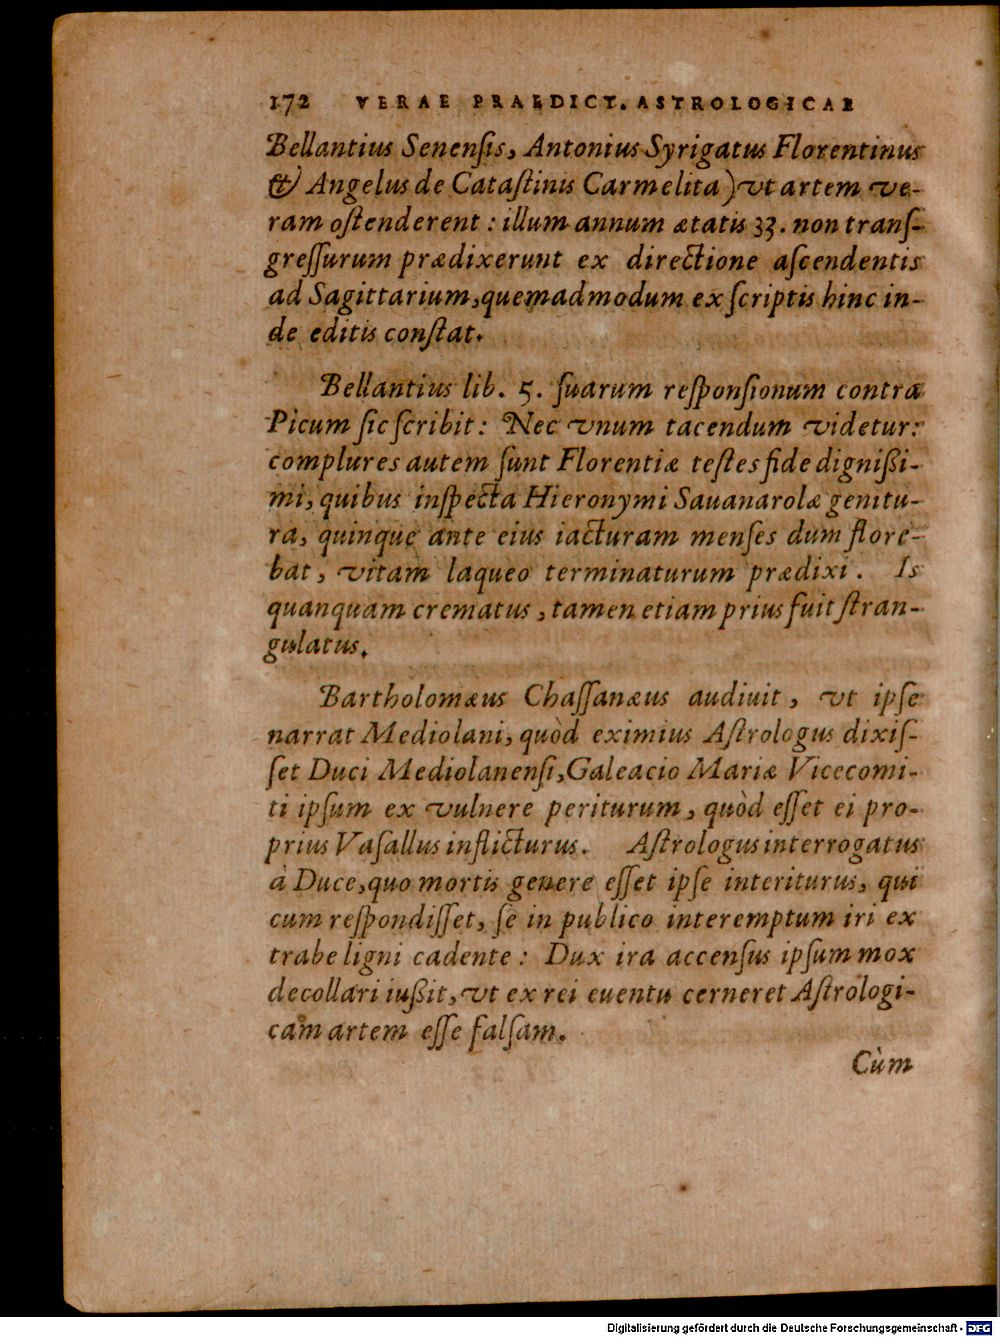 172 VERAE PRAEDICT. ASTROLOGICAE
Bellantius Senenſis, Antonius Syrigatus Florentinus
& Angelus de Cataſtinis Carmelita) vt artem ve-
ram oſtenderent: illum annum ætatis 33. non tranſ-
greſſurum prædixerunt ex directione aſcendentis
ad Sagittarium, quemadmodum ex ſcriptis hinc in-
de editis conſtat.
Bellantius lib. 5. ſuarum reſponſionum contra
Picum ſic ſcribit: Nec vnum tacendum videtur:
complures autem ſunt Florentiæ teſtes fide dignißi-
mi, quibus inſpecta Hieronymi Sauanarolæ genitu-
ra, quinque ante eius iacturam menſes dum flore-
bat, vitam laqueo terminaturum prædixi. Is
quanquam crematus, tamen etiam prius fuit ſtran-
gulatus.
Bartholomæus Chaſſanæus audiuit, vt ipſe
narrat Mediolani, quòd eximius Aſtrologus dixiſ-
ſet Duci Mediolanenſi, Galeacio Mariæ Vicecomi-
ti ipſum ex vulnere periturum, quòd eſſet ei pro-
prius Vaſallus inflicturus. Aſtrologus interrogatus
à Duce, quo mortis genere eſſet ipſe interiturus, qui
cum reſpondiſſet, ſe in publico interemptum iri ex
trabe ligni cadente: Dux ira accenſus ipſum mox
decollari iußit, vt ex rei euentu cerneret Aſtrologi-
cam artem eſſe falſam.
Cùm
Digitalisierung gefördert durch die Deutsche Forschungsgemeinschaft - DFG